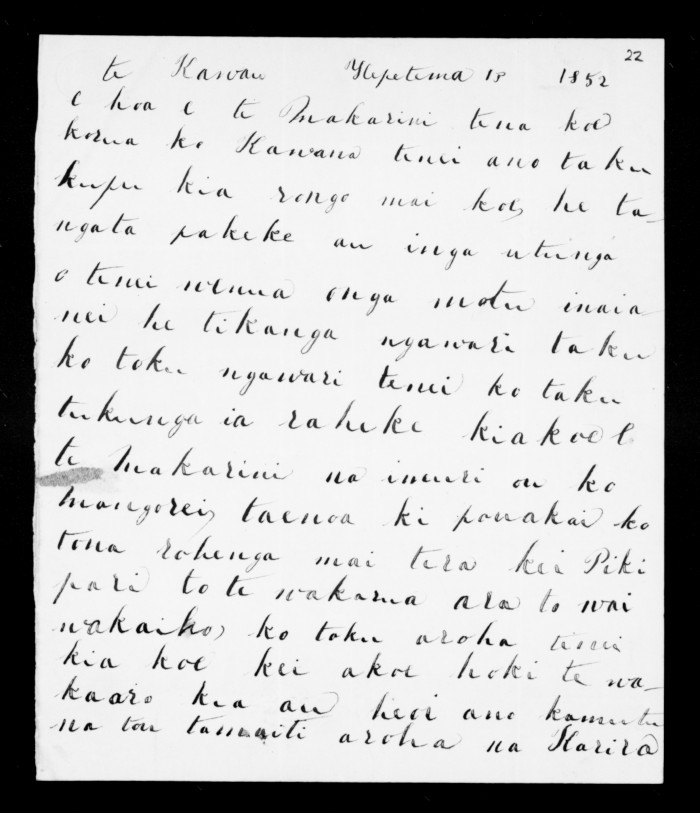 22
te Kawau Hepetema 13 1852
E hoa e te Makarini tena koe
korua ko Kawana tenei ano taku
kupu kia rongo mai koe, he ta-
ngata pakeke au inga utunga
o tenei wenua onga motu inaia
nei he tikanga ngawari taku
ko toku ngawari tenei ko taku
tukunga ia raheke kiakoe E
te Makarini na imuri ou ko
Mangorei, taenoa ki pouakai ko
tona rohenga mai tera kei Piki
pari to te wakarua ara to wai
wakaiho, ko toku aroha tenei
kia koe kei akoe hoki te wa-
kaaro kia au heoi ano kamutu
na tou tamaiti aroha na Karira